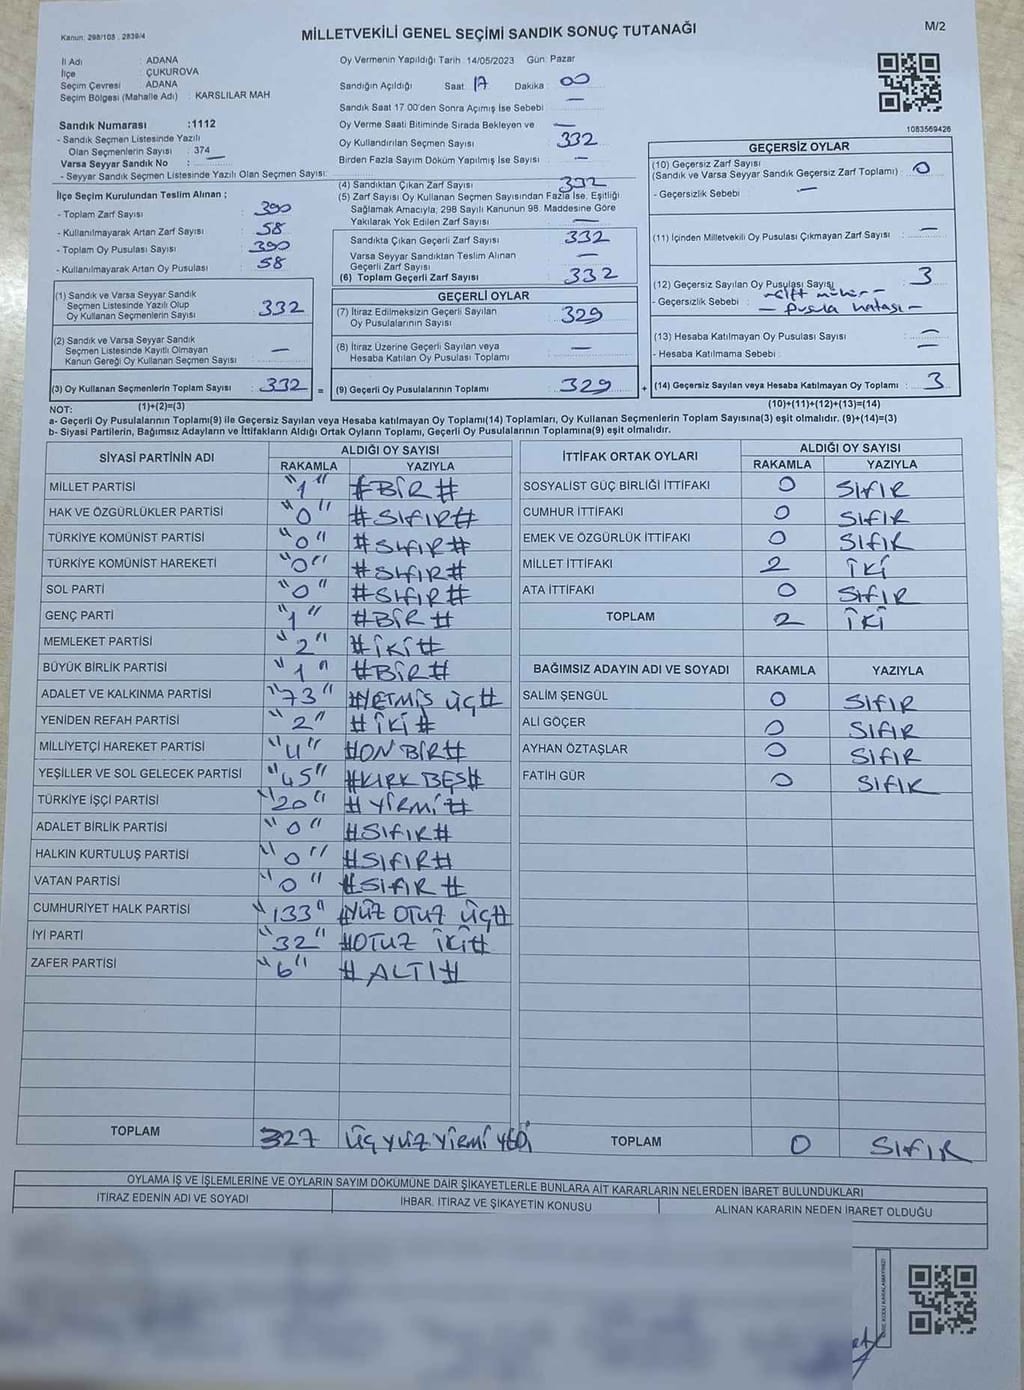 Kanun: 298/105 , 2839/4
MİLLETVEKİLİ GENEL SEÇİMİ SANDIK SONUÇ TUTANAĞI
M/2
İl Adı : ADANA
İlçe : ÇUKUROVA
Seçim Çevresi : ADANA
Seçim Bölgesi (Mahalle Adı) : KARSLILAR MAH
Sandık Numarası :1112
- Sandık Seçmen Listesinde Yazılı
Olan Seçmenlerin Sayısı : 374
Varsa Seyyar Sandık No : —
- Seyyar Sandık Seçmen Listesinde Yazılı Olan Seçmen Sayısı:
Oy Vermenin Yapıldığı Tarih 14/05/2023 Gün: Pazar
Sandığın Açıldığı Saat 17 Dakika : 00
Sandık Saat 17.00'den Sonra Açımış İse Sebebi : —
Oy Verme Saati Bitiminde Sırada Bekleyen ve —
Oy Kullandırılan Seçmen Sayısı : 332
Birden Fazla Sayım Döküm Yapılmış İse Sayısı : —
1083569426
İlçe Seçim Kurulundan Teslim Alınan ;
- Toplam Zarf Sayısı : 390
- Kullanılmayarak Artan Zarf Sayısı : 58
- Toplam Oy Pusulası Sayısı : 390
- Kullanılmayarak Artan Oy Pusulası : 58
(1) Sandık ve Varsa Seyyar Sandık
Seçmen Listesinde Yazılı Olup
Oy Kullanan Seçmenlerin Sayısı : 332
(2) Sandık ve Varsa Seyyar Sandık
Seçmen Listesinde Kayıtlı Olmayan
Kanun Gereği Oy Kullanan Seçmen Sayısı : —
(3) Oy Kullanan Seçmenlerin Toplam Sayısı : 332 =
(4) Sandıktan Çıkan Zarf Sayısı : 332
(5) Zarf Sayısı Oy Kullanan Seçmen Sayısından Fazla İse, Eşitliği
Sağlamak Amacıyla, 298 Sayılı Kanunun 98. Maddesine Göre
Yakılarak Yok Edilen Zarf Sayısı : —
Sandıkta Çıkan Geçerli Zarf Sayısı : 332
Varsa Seyyar Sandıktan Teslim Alınan
Geçerli Zarf Sayısı : —
(6) Toplam Geçerli Zarf Sayısı : 332
GEÇERLİ OYLAR
(7) İtiraz Edilmeksizin Geçerli Sayılan
Oy Pusulalarının Sayısı : 329
(8) İtiraz Üzerine Geçerli Sayılan veya
Hesaba Katılan Oy Pusulası Toplamı : —
(9) Geçerli Oy Pusulalarının Toplamı : 329 +
GEÇERSİZ OYLAR
(10) Geçersiz Zarf Sayısı
(Sandık ve Varsa Seyyar Sandık Geçersiz Zarf Toplamı) : 0
- Geçersizlik Sebebi : —
(11) İçinden Milletvekili Oy Pusulası Çıkmayan Zarf Sayısı : —
(12) Geçersiz Sayılan Oy Pusulası Sayısı : 3
- Geçersizlik Sebebi : -çift mühür-
- pusula hatası -
(13) Hesaba Katılmayan Oy Pusulası Sayısı : —
- Hesaba Katılmama Sebebi : —
(14) Geçersiz Sayılan veya Hesaba Katılmayan Oy Toplamı : 3
NOT: (1)+(2)=(3) (10)+(11)+(12)+(13)=(14)
a- Geçerli Oy Pusulalarının Toplamı(9) ile Geçersiz Sayılan veya Hesaba katılmayan Oy Toplamı(14) Toplamları, Oy Kullanan Seçmenlerin Toplam Sayısına(3) eşit olmalıdır. (9)+(14)=(3)
b- Siyasi Partilerin, Bağımsız Adayların ve İttifakların Aldığı Ortak Oyların Toplamı, Geçerli Oy Pusulalarının Toplamına(9) eşit olmalıdır.
SİYASİ PARTİNİN ADI ALDIĞI OY SAYISI
RAKAMLA YAZIYLA
MİLLET PARTİSİ "1" #BİR#
HAK VE ÖZGÜRLÜKLER PARTİSİ "0" #SIFIR#
TÜRKİYE KOMÜNİST PARTİSİ "0" #SIFIR#
TÜRKİYE KOMÜNİST HAREKETİ "0" #SIFIR#
SOL PARTİ "0" #SIFIR#
GENÇ PARTİ "1" #BİR#
MEMLEKET PARTİSİ "2" #İKİ#
BÜYÜK BİRLİK PARTİSİ "1" #BİR#
ADALET VE KALKINMA PARTİSİ "73" #YETMİŞ ÜÇ#
YENİDEN REFAH PARTİSİ "2" #İKİ#
MİLLİYETÇİ HAREKET PARTİSİ "11" #ON BİR#
YEŞİLLER VE SOL GELECEK PARTİSİ "45" #KIRK BEŞ#
TÜRKİYE İŞÇİ PARTİSİ "20" #YİRMİ#
ADALET BİRLİK PARTİSİ "0" #SIFIR#
HALKIN KURTULUŞ PARTİSİ "0" #SIFIR#
VATAN PARTİSİ "0" #SIFIR#
CUMHURİYET HALK PARTİSİ "133" #YÜZ OTUZ ÜÇ#
İYİ PARTİ "32" #OTUZ İKİ#
ZAFER PARTİSİ "6" #ALTI#
TOPLAM 327 ÜÇ YÜZ YİRMİ YEDİ
İTTİFAK ORTAK OYLARI ALDIĞI OY SAYISI
RAKAMLA YAZIYLA
SOSYALİST GÜÇ BİRLİĞİ İTTİFAKI 0 SIFIR
CUMHUR İTTİFAKI 0 SIFIR
EMEK VE ÖZGÜRLÜK İTTİFAKI 0 SIFIR
MİLLET İTTİFAKI 2 İKİ
ATA İTTİFAKI 0 SIFIR
TOPLAM 2 İKİ
BAĞIMSIZ ADAYIN ADI VE SOYADI RAKAMLA YAZIYLA
SALİM ŞENGÜL 0 SIFIR
ALİ GÖÇER 0 SIFIR
AYHAN ÖZTAŞLAR 0 SIFIR
FATİH GÜR 0 SIFIR
TOPLAM 0 SIFIR
OYLAMA İŞ VE İŞLEMLERİNE VE OYLARIN SAYIM DÖKÜMÜNE DAİR ŞİKAYETLERLE BUNLARA AİT KARARLARIN NELERDEN İBARET BULUNDUKLARI
İTİRAZ EDENİN ADI VE SOYADI İHBAR, İTİRAZ VE ŞİKAYETİN KONUSU ALINAN KARARIN NEDEN İBARET OLDUĞU